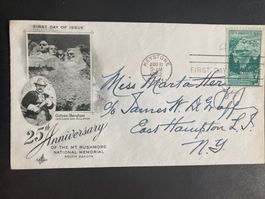 FIRST DAY OF ISSUE
Gutzon Borglum
25th Anniversary
OF THE MT. RUSHMORE
NATIONAL MEMORIAL
SOUTH DAKOTA
KEYSTONE
AUG 11
FIRST DAY
Miss Marta
c/o James N. De Graff
East Hampton L.I.
N.Y.